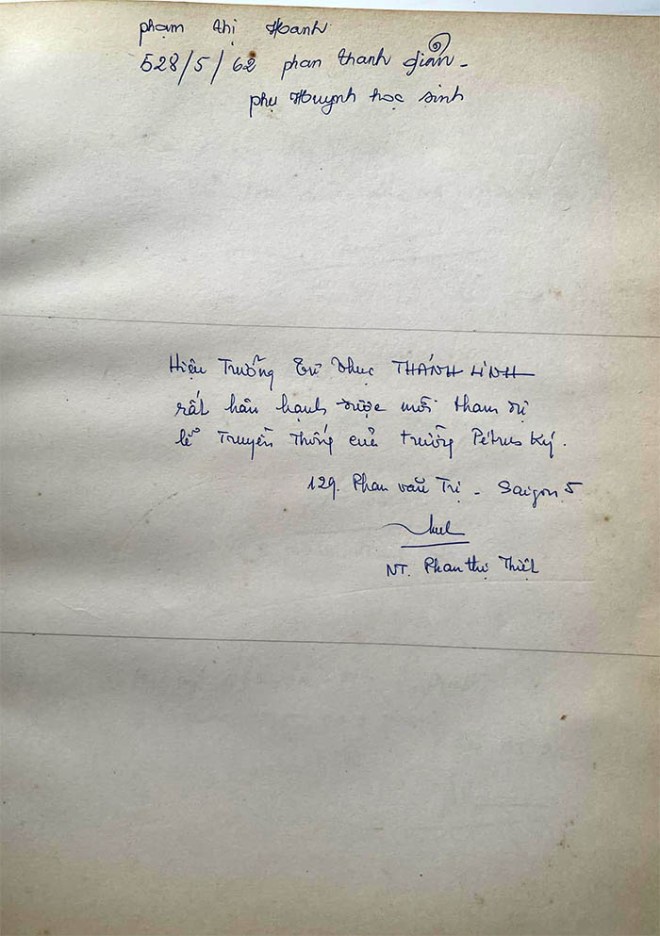 phạm thị Hanh
528/5/62 phan thanh giản -
phụ Huynh học sinh
Hiệu Trưởng Tư Thục THÁNH LINH
rất hân hạnh được mời tham dự
lễ Truyền Thống của trường Pétrus Ký.
129. Phan văn Trị - Saigon 5
NT. Phan thị Thiệt